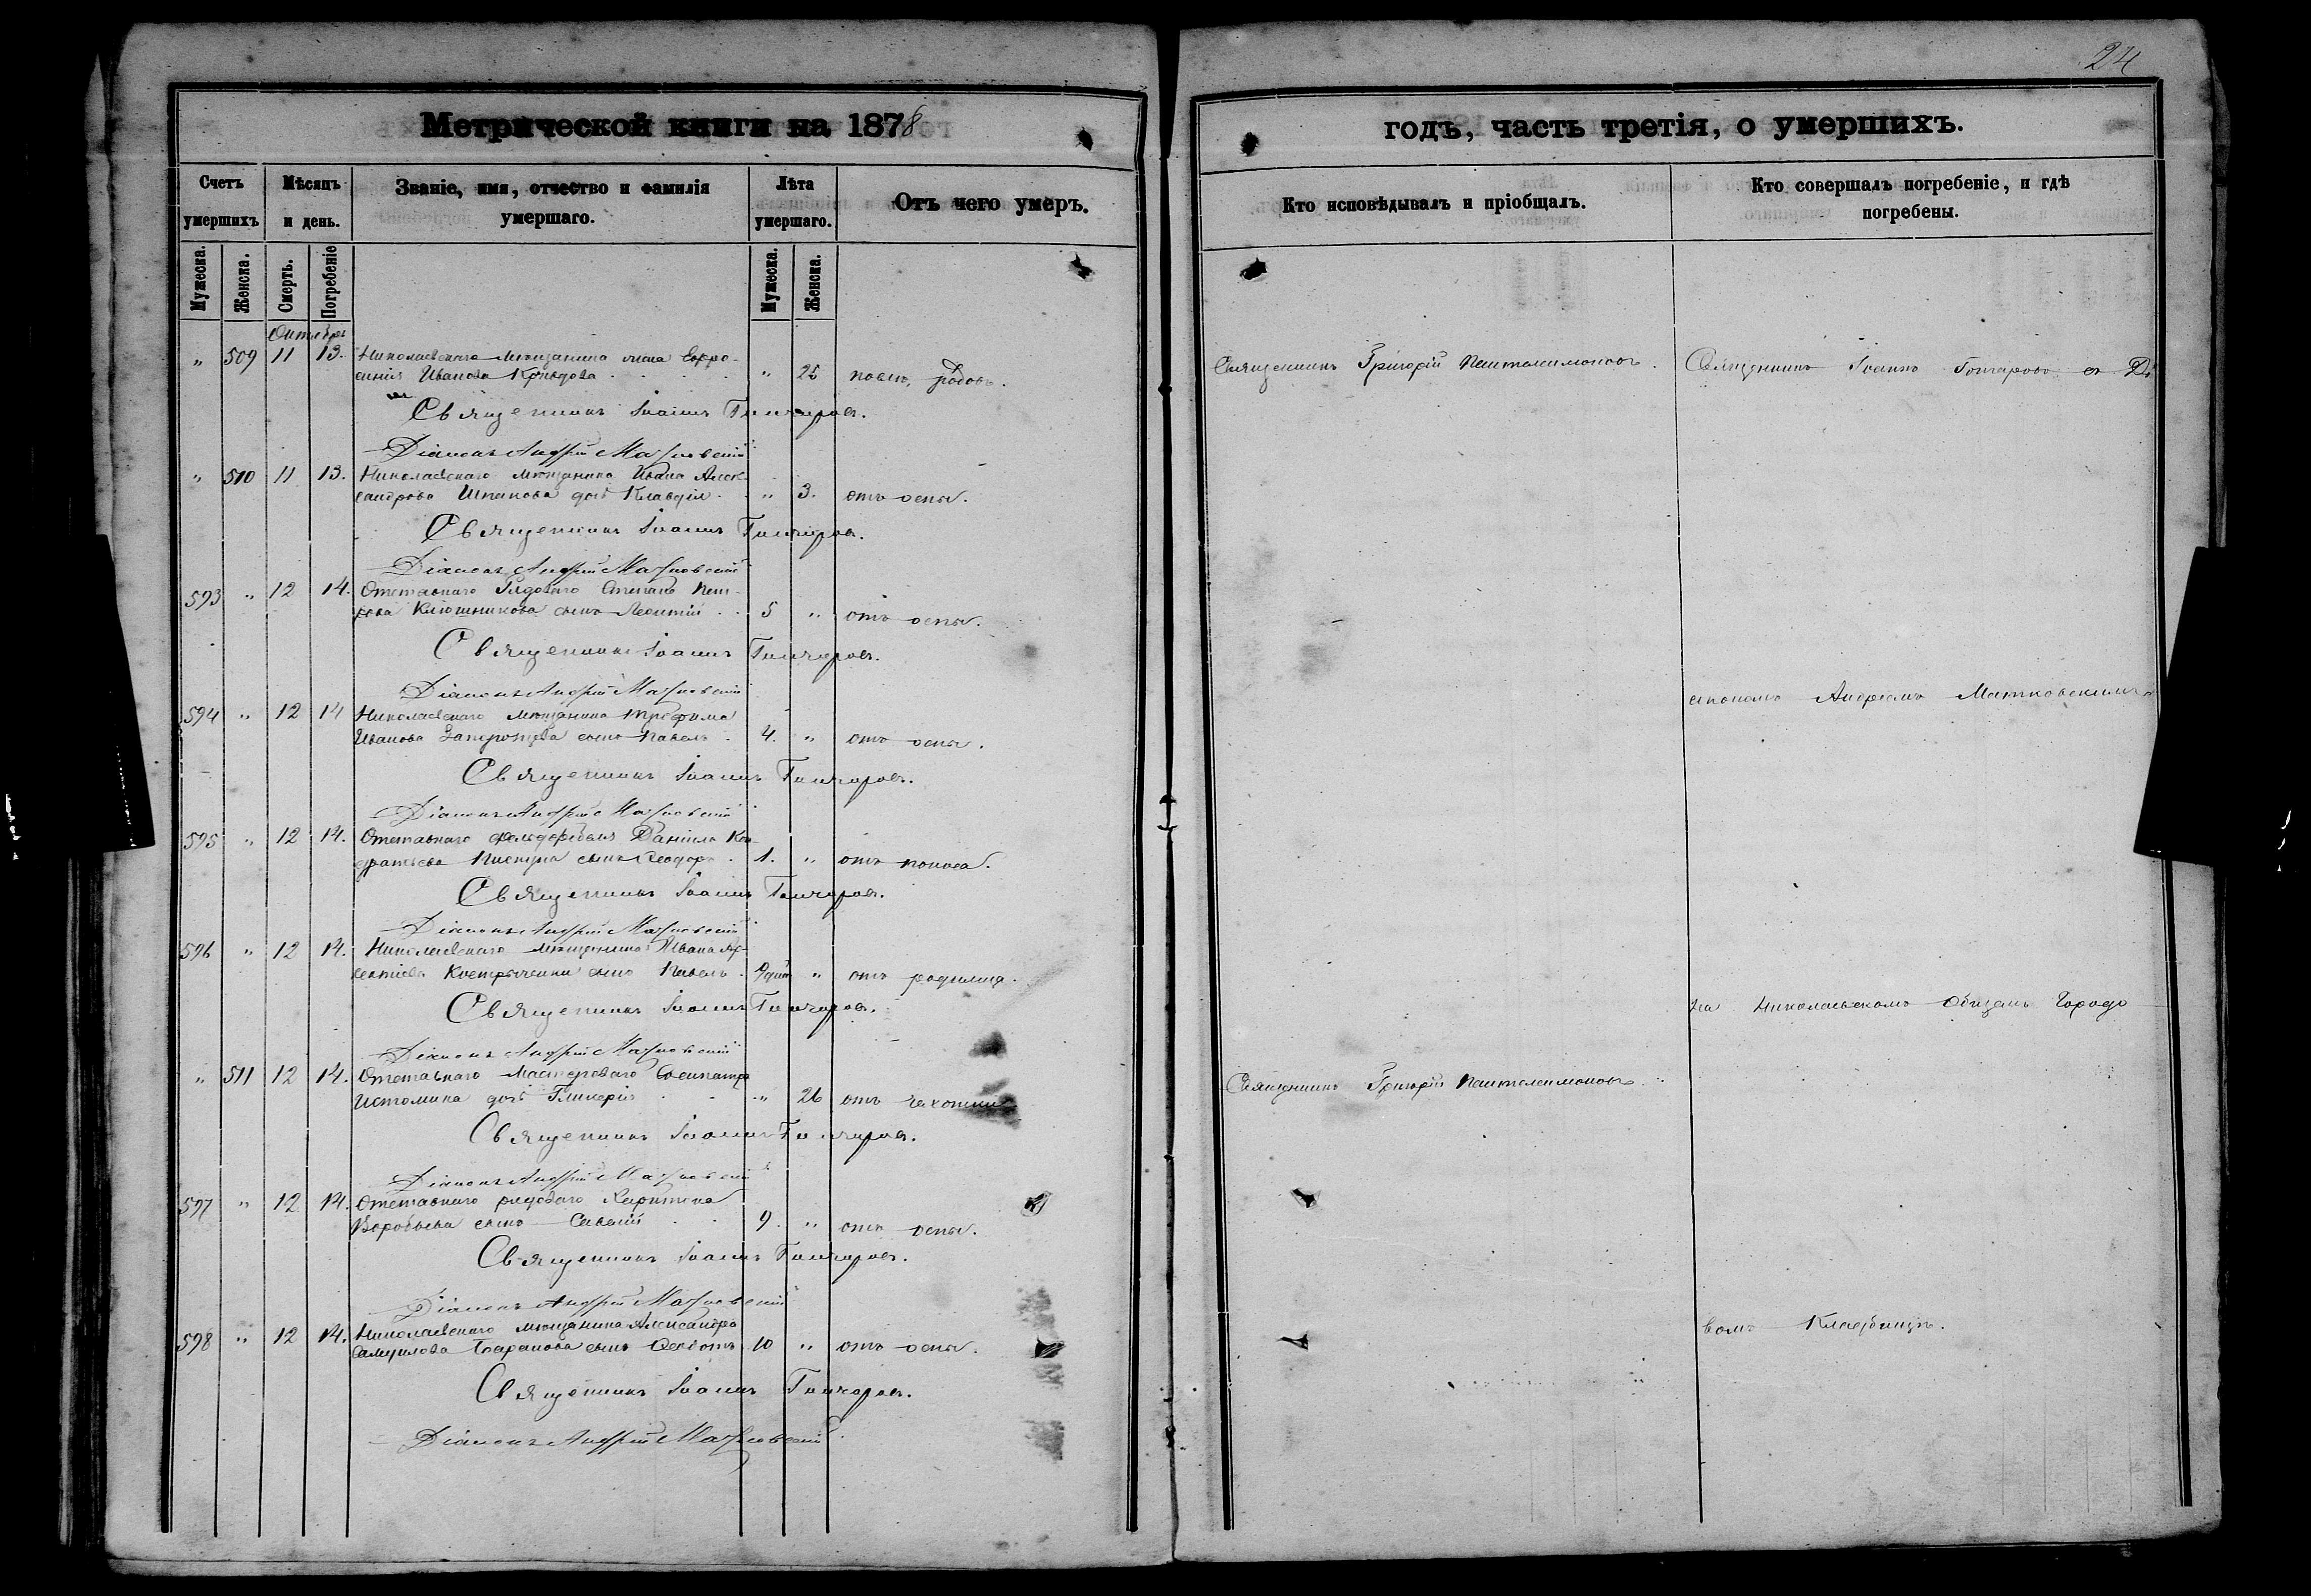 24
Метрической книги на 1878
годъ, часть третія, о умершихъ.
Счетъ умершихъ
Мѣсяцъ и день.
Званіе, имя, отчество и фамилія умершаго.
Лѣта умершаго.
Отъ чего умеръ.
Кто исповѣдывалъ и пріобщалъ.
Кто совершалъ погребеніе, и гдѣ погребены.
Мужеска.
Женска.
Смерть.
Погребеніе
Мужеска.
Женска.
Октябрь
" 509 11 13. Николаевскаго мѣщанина жена Евфро-
синія Иванова " 25 послѣ родовъ.
Священникъ Григорій Пантелеимоновъ. Священникъ Іоаннъ Гончаровъ съ Ді
Священникъ Іоаннъ Гончаровъ.
Діаконъ Андрей Матковскій
" 510 11 13. Николаевскаго мѣщанина Ивана Алек-
сандрова Шпакова дочь Клавдія " 3. отъ оспы.
Священникъ Іоаннъ Гончаровъ.
Діаконъ Андрей Матковскій
593 " 12 14. Отставнаго Рядоваго Степана Пет-
рова Ключникова сынъ Леонтій 5 " отъ оспы.
Священникъ Іоаннъ Гончаровъ.
Діаконъ Андрей Матковскій
акономъ Андреемъ Матковскимъ
594 " 12 14 Николаевскаго мѣщанина Трофима
Иванова сынъ Павелъ 4. " отъ оспы.
Священникъ Іоаннъ Гончаровъ.
Діаконъ Андрей Матковскій
595 " 12 14. Отставнаго фельдфебеля Даніила Кон-
дратьева сынъ Ѳеодоръ 1. " отъ поноса.
Священникъ Іоаннъ Гончаровъ.
Діаконъ Андрей Матковскій
596 " 12 14. Николаевскаго мѣщанина Ивана
сынъ Павелъ " отъ родимца.
Священникъ Іоаннъ Гончаровъ.
на Николаевскомъ Общемъ Городо
Діаконъ Андрей Матковскій
" 511 12 14. Отставнаго Мастероваго
Истомина дочь Гликерія " 26 отъ чахотки
Священникъ Григорій Пантелеимоновъ.
Священникъ Іоаннъ Гончаровъ.
Діаконъ Андрей Матковскій
597 " 12 14. Отставнаго рядоваго Харитона
Воробьева сынъ Савелій 9. " отъ оспы.
Священникъ Іоаннъ Гончаровъ.
Діаконъ Андрей Матковскій
598 " 12 14. Николаевскаго мѣщанина Александра
Самуилова Баранова сынъ 10 " отъ оспы.
вомъ Кладбищѣ.
Священникъ Іоаннъ Гончаровъ.
Діаконъ Андрей Матковскій